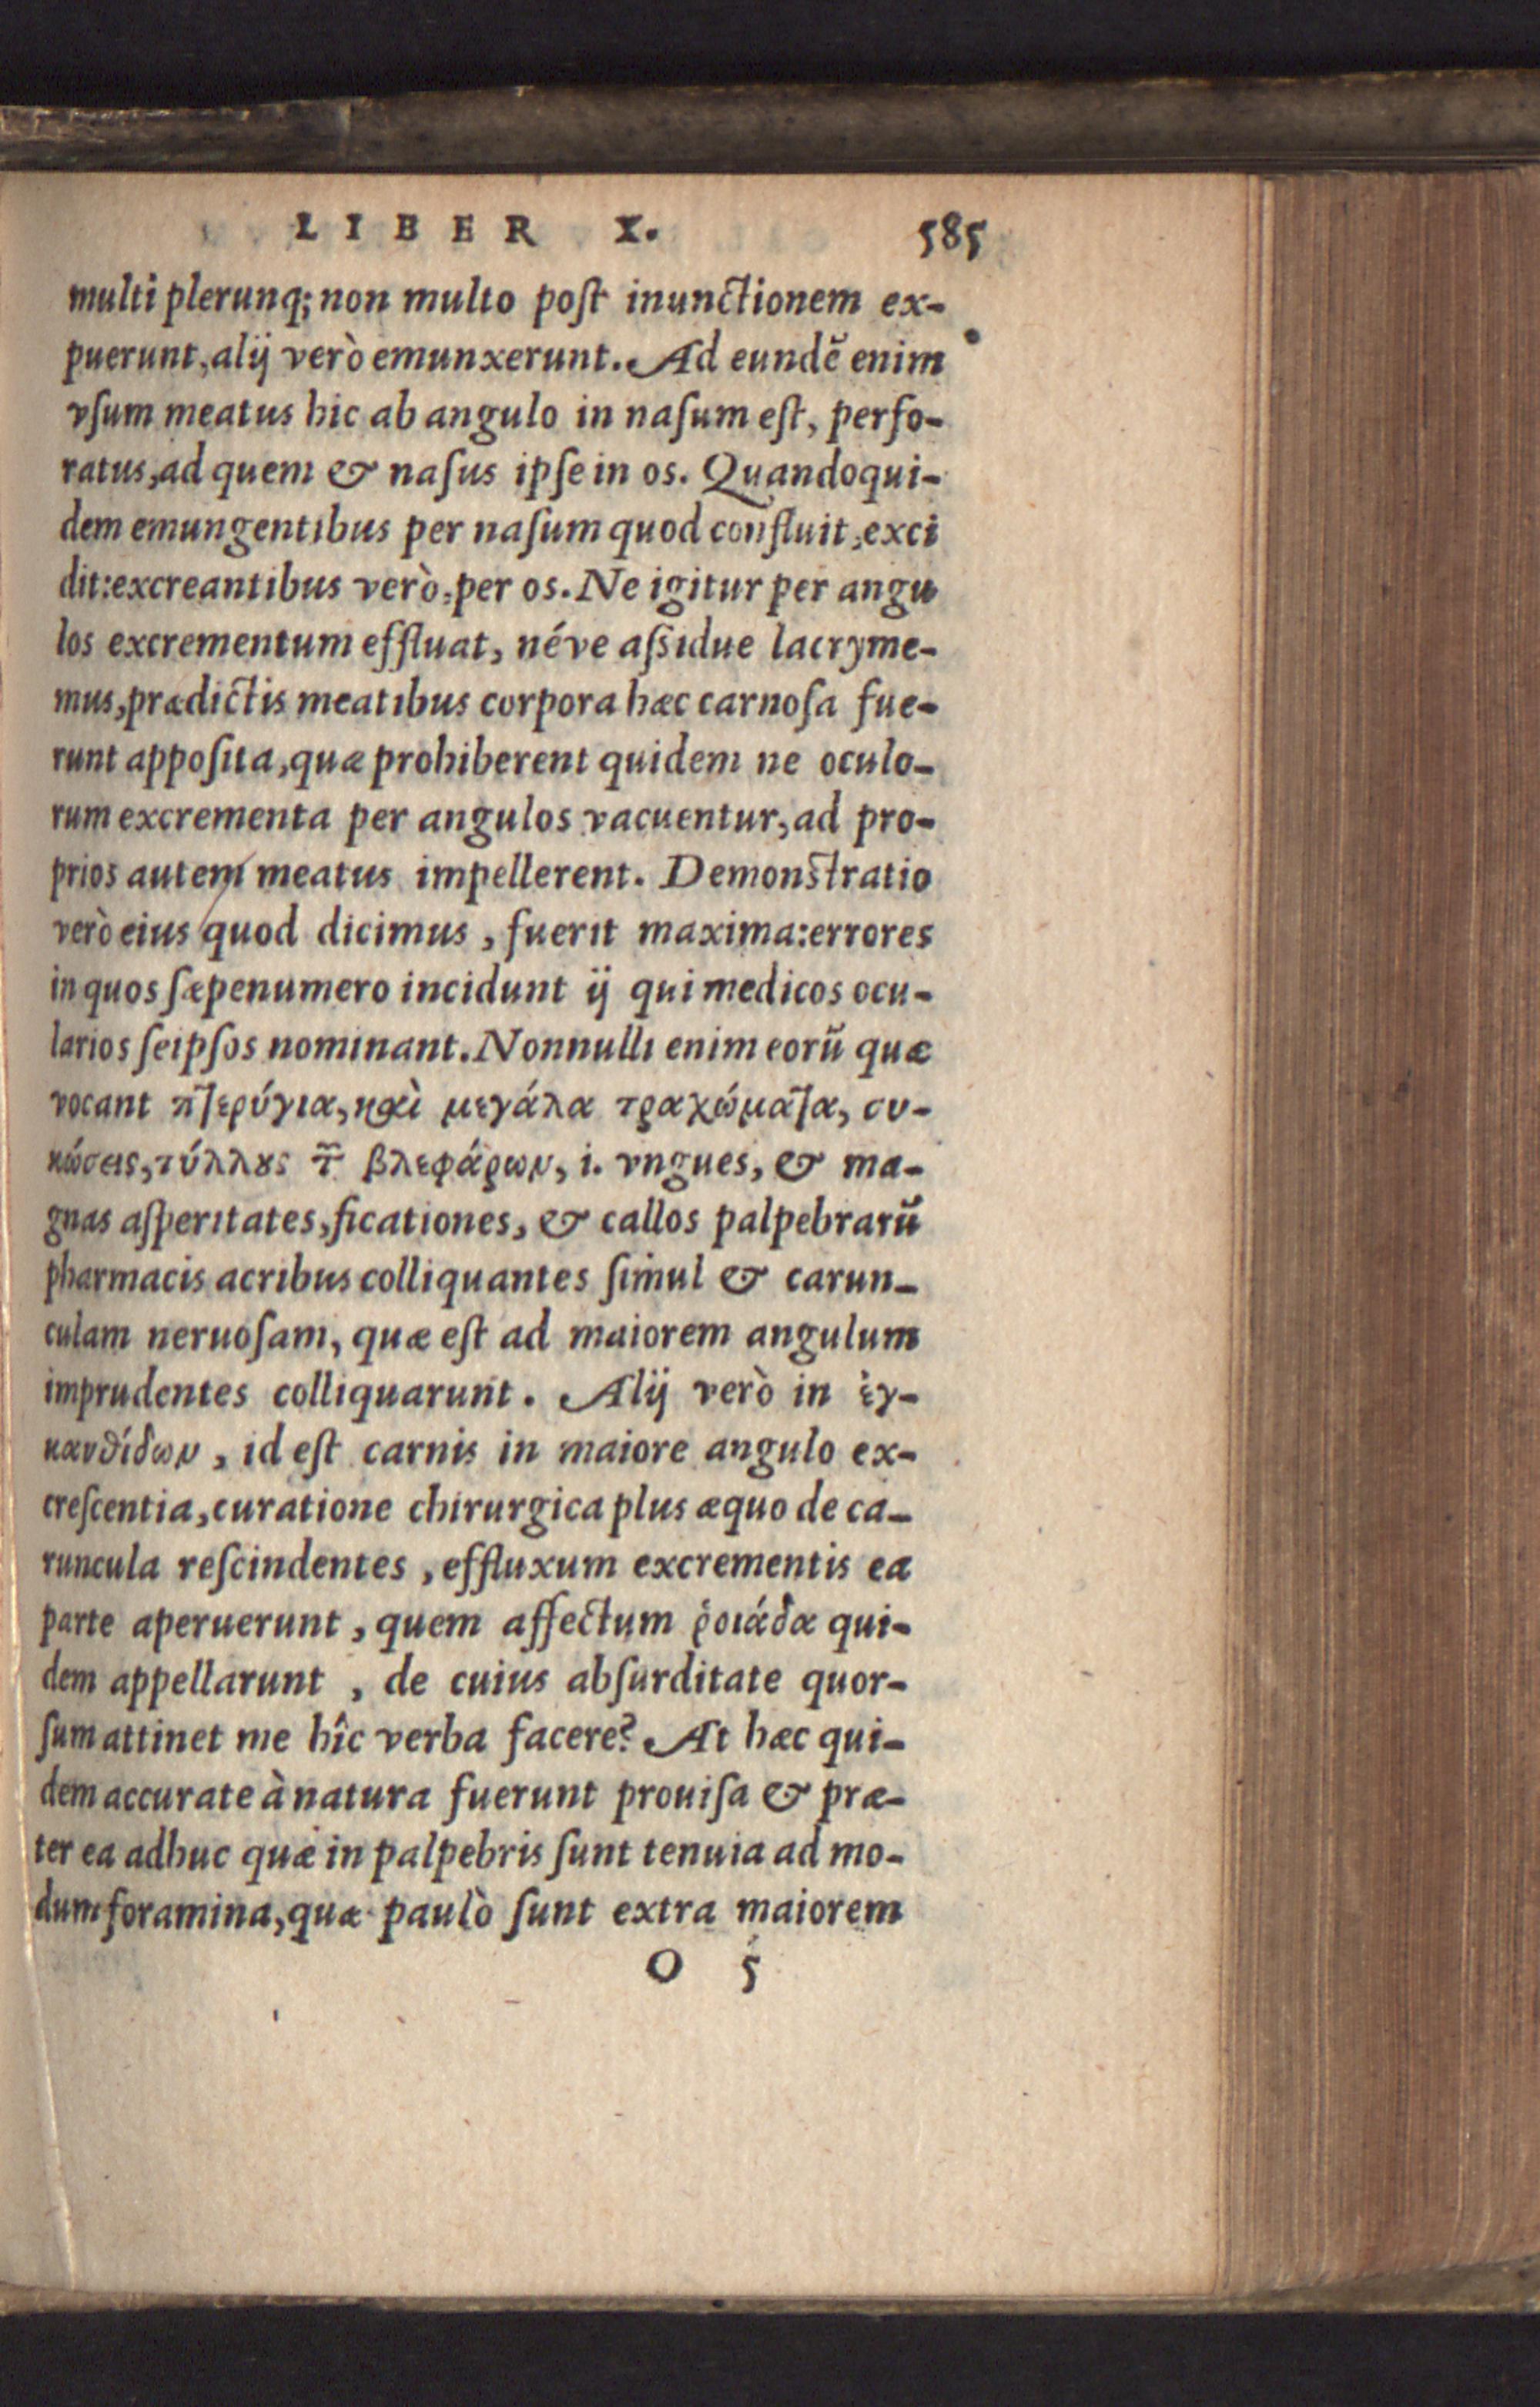 LIBER X. 585
multi plerunq; non multo poſt inunctionem ex-
puerunt, alij verò emunxerunt. Ad eundẽ enim
vſum meatus hic ab angulo in naſum eſt, perfo-
ratus, ad quem & naſus ipſe in os. Quandoqui-
dem emungentibus per naſum quod confluit, exci
dit: excreantibus verò, per os. Ne igitur per angu
los excrementum effluat, néve aſsidue lacryme-
mus, prædictis meatibus corpora hæc carnoſa fue-
runt appoſita, quæ prohiberent quidem ne oculo-
rum excrementa per angulos vacuentur, ad pro-
prios autem meatus impellerent. Demonſtratio
verò eius quod dicimus, fuerit maxima: errores
in quos ſæpenumero incidunt ij qui medicos ocu-
larios ſeipſos nominant. Nonnulli enim eorũ quæ
vocant πτερύγια, καὶ μεγάλα τραχώματα, συ-
κώσεις, τύλλους τῶν βλεφάρων, i. vngues, & ma-
gnas aſperitates, ficationes, & callos palpebrarũ
pharmacis acribus colliquantes ſimul & carun-
culam neruoſam, quæ eſt ad maiorem angulum
imprudentes colliquarunt. Alij verò in ἐγ-
κανθίδων, id eſt carnis in maiore angulo ex-
creſcentia, curatione chirurgica plus æquo de ca-
runcula reſcindentes, effluxum excrementis ea
parte aperuerunt, quem affectum ῥοιάδα qui-
dem appellarunt, de cuius abſurditate quor-
ſum attinet me hîc verba facere? At hæc qui-
dem accurate à natura fuerunt prouiſa & præ-
ter ea adhuc quæ in palpebris ſunt tenuia ad mo-
dum foramina, quæ paulò ſunt extra maiorem
O 5